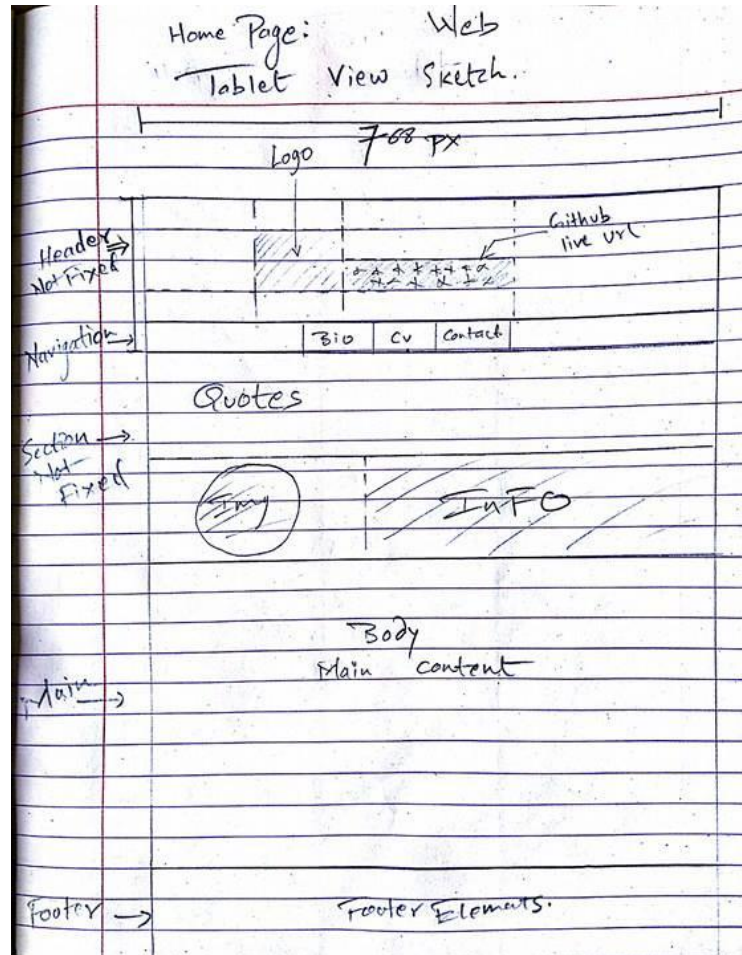 Home Page: Web
Tablet View Sketch.
768 px
Logo
Github
live url
Header
Not Fixed
Navigation
Bio
Cv
Contact
Quotes
Section
Not
Fixed
Img
InFO
Body
Main content
Main
Footer
Footer Elements.